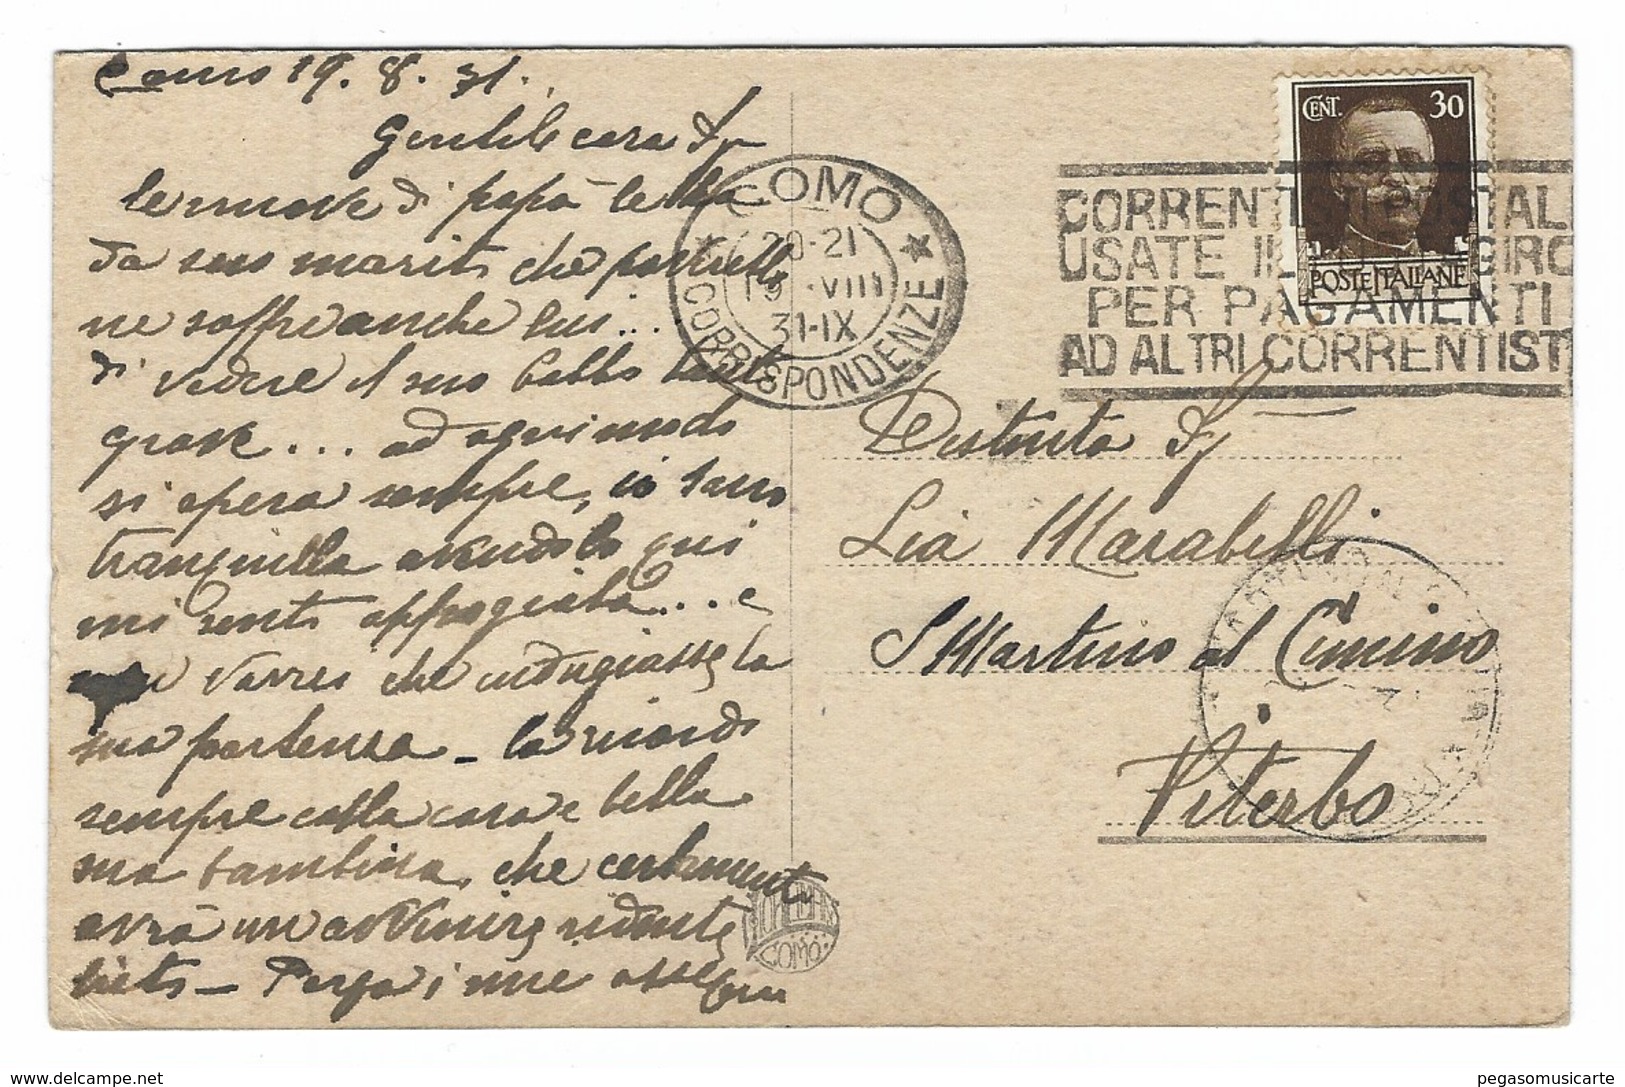 Como 19.8.31.
Gentile cara Sg
le nuove di papà le ha
da suo marito che
ne soffre anche lui...
di vedere il suo babbo
grave... ad ogni modo
si spera sempre, io sono
tranquilla avendolo qui
mi sento appoggiata... e
vorrei che indugiasse la
sua partenza - la ricordo
sempre colla cara e bella
sua bambina, che certamente
avrà un avvenire ridente
lieto - Porga i miei ossequi
COMO
20-21
19 VIII
31-IX
CORRISPONDENZE
CENT. 30
POSTE ITALIANE
CORRENTISTI POSTALI
USATE IL POSTAGIRO
PER PAGAMENTI
AD ALTRI CORRENTISTI
Distinta Sg
Lia Marabelli
S Martino al Cimino
Viterbo
COMO
pegasomusicarte
delcampe.net